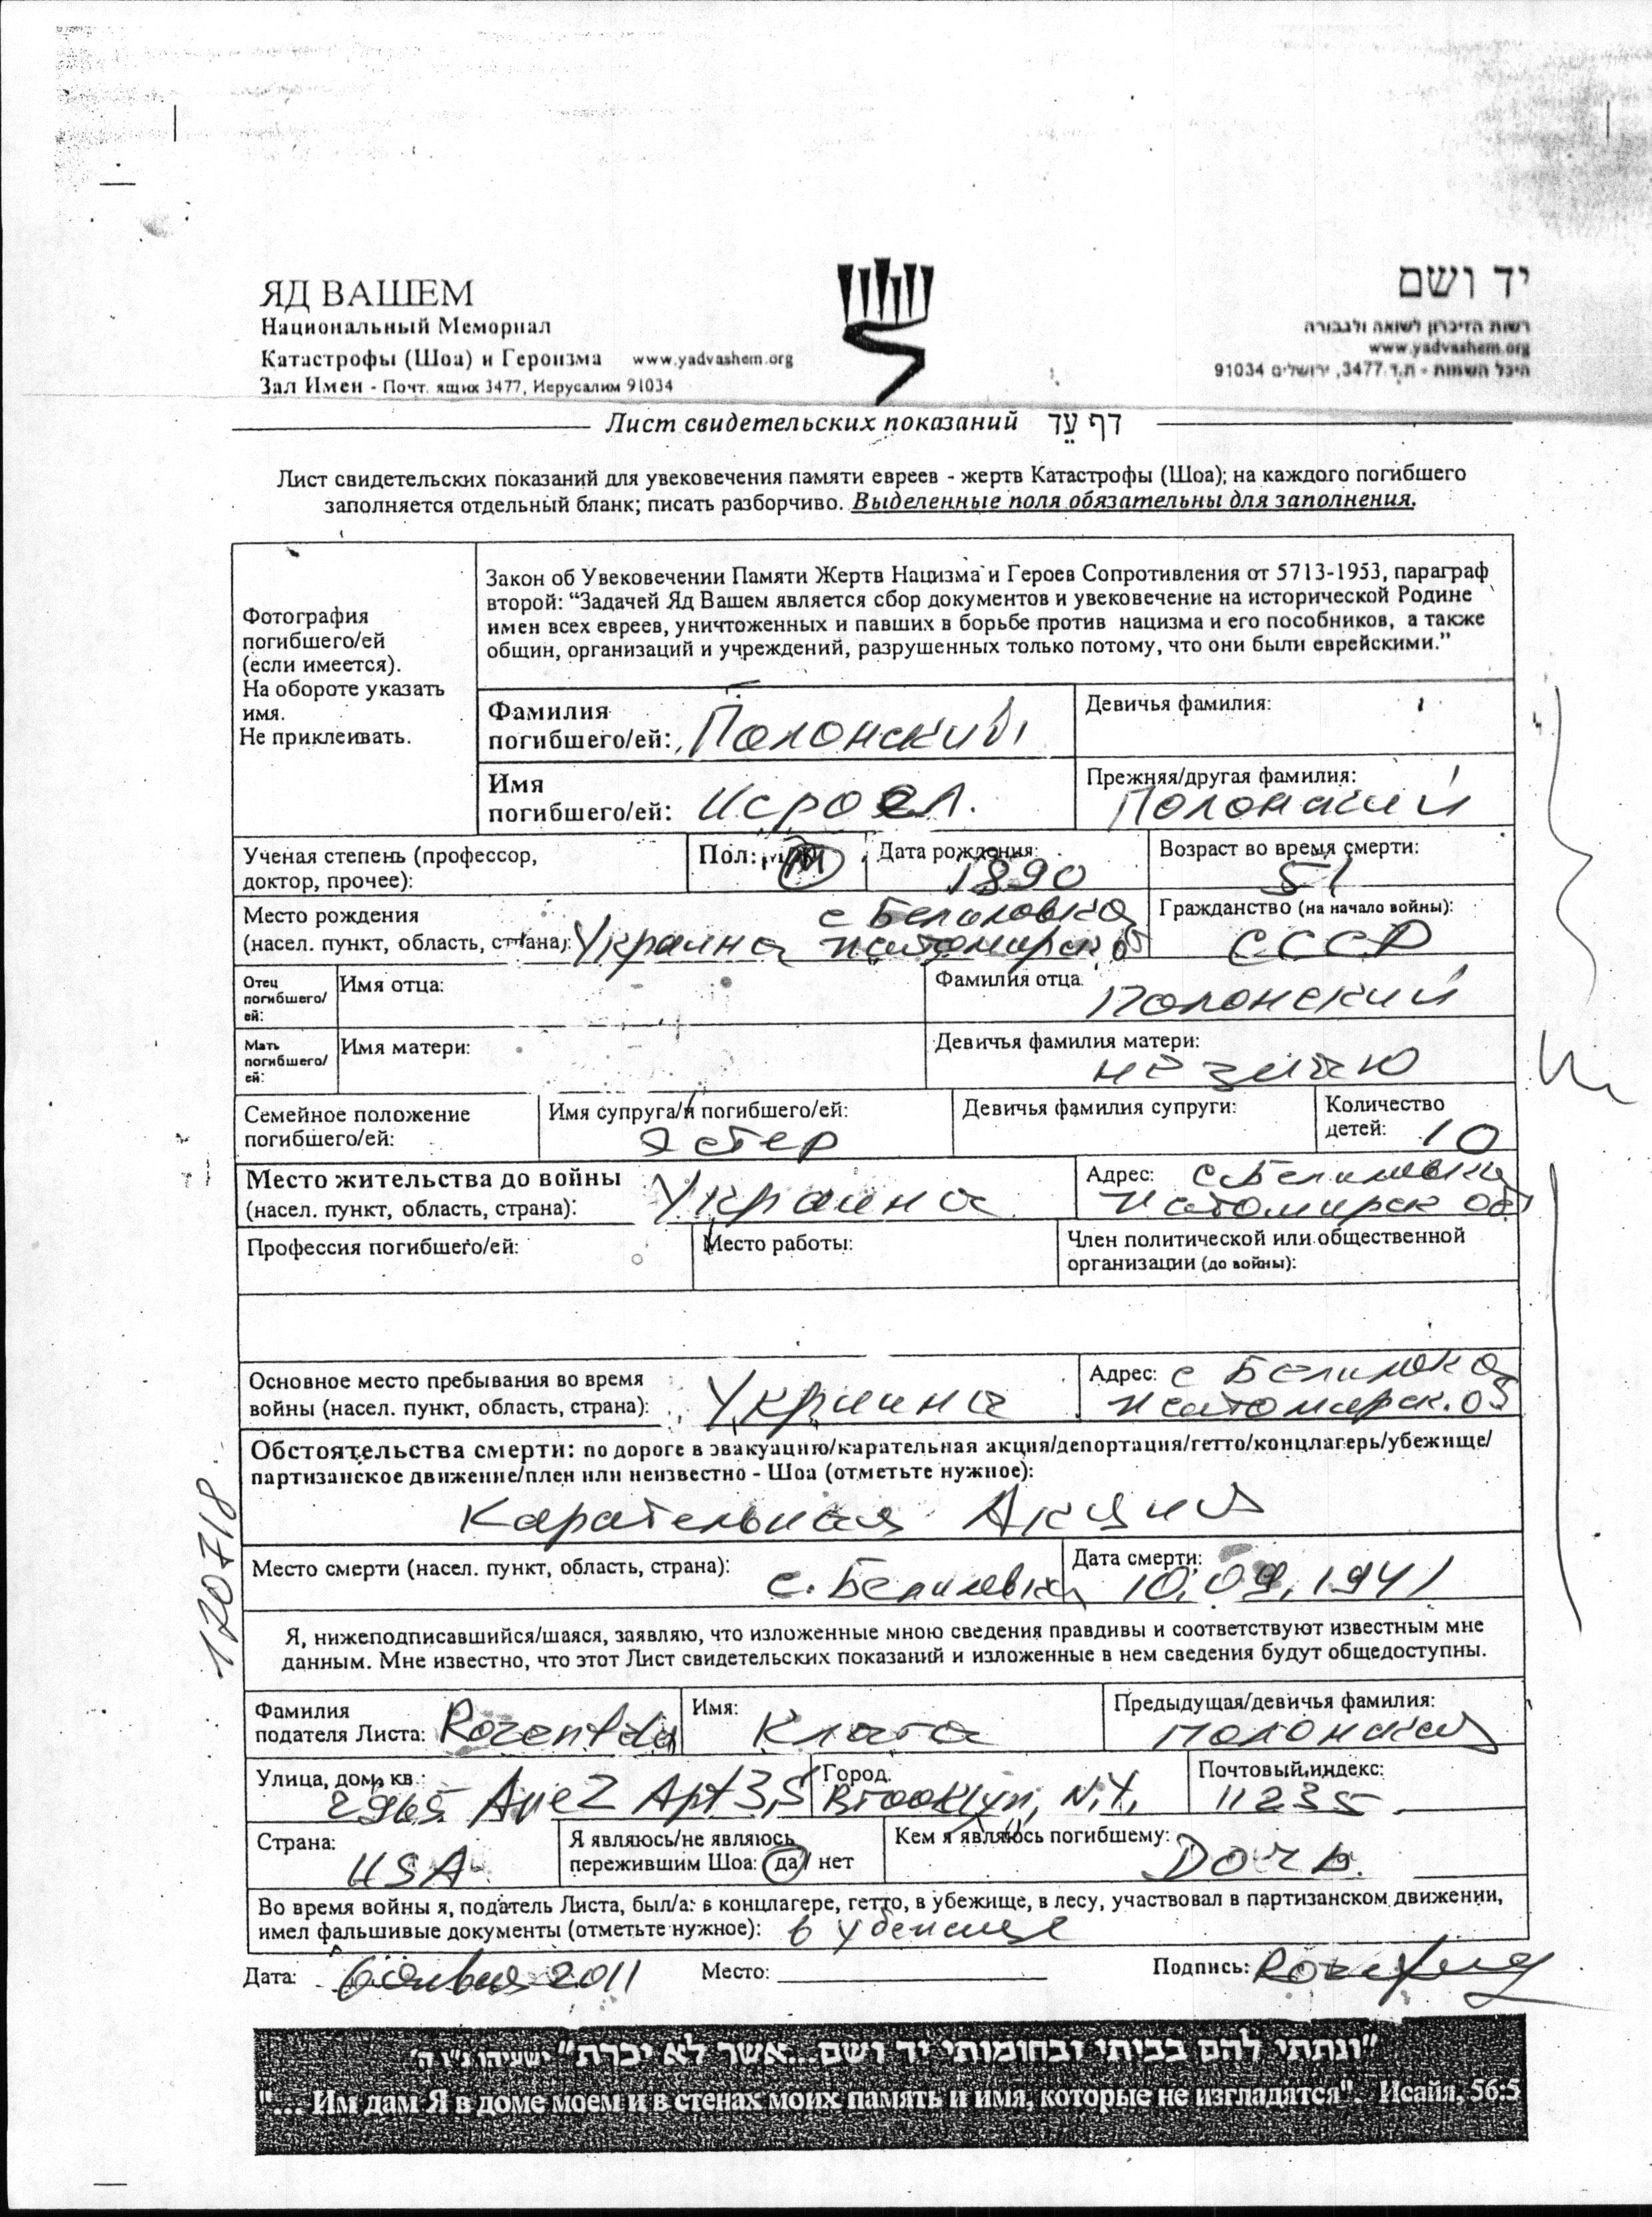 ЯД ВАШЕМ
Национальный Мемориал
Катастрофы (Шоа) и Героизма www.yadvashem.org
Зал Имен - Почт. ящик 3477, Иерусалим 91034
יד ושם
רשות הזיכרון לשואה ולגבורה
www.yadvashem.org
היכל השמות - ת.ד 3477, ירושלים 91034
Лист свидетельских показаний דף עֵד
Лист свидетельских показаний для увековечения памяти евреев - жертв Катастрофы (Шоа); на каждого погибшего
заполняется отдельный бланк; писать разборчиво. Выделенные поля обязательны для заполнения.
Фотография
погибшего/ей
(если имеется).
На обороте указать
имя.
Не приклеивать.
Закон об Увековечении Памяти Жертв Нацизма и Героев Сопротивления от 5713-1953, параграф
второй: “Задачей Яд Вашем является сбор документов и увековечение на исторической Родине
имен всех евреев, уничтоженных и павших в борьбе против нацизма и его пособников, а также
общин, организаций и учреждений, разрушенных только потому, что они были еврейскими.”
Фамилия
погибшего/ей: Полонский
Девичья фамилия:
Имя
погибшего/ей: Исроел.
Прежняя/другая фамилия:
Полонский
Ученая степень (профессор,
доктор, прочее):
Пол: М
Дата рождения:
1890
Возраст во время смерти:
51
Место рождения с Белиловка
(насел. пункт, область, страна): Украина житомирск об
Гражданство (на начало войны):
СССР
Отец
погибшего/
ей:
Имя отца:
Фамилия отца
Полонский
Мать
погибшего/
ей:
Имя матери:
Девичья фамилия матери:
не знаю
Семейное положение
погибшего/ей:
Имя супруга/и погибшего/ей:
Эстер
Девичья фамилия супруги:
Количество
детей: 10
Место жительства до войны
(насел. пункт, область, страна): Украина
Адрес: с. Белиловка
житомирск об
Профессия погибшего/ей:
Место работы:
Член политической или общественной
организации (до войны):
Основное место пребывания во время
войны (насел. пункт, область, страна): Украина
Адрес: с Белиловка
житомирск. об
Обстоятельства смерти: по дороге в эвакуацию/карательная акция/депортация/гетто/концлагерь/убежище/
партизанское движение/плен или неизвестно - Шоа (отметьте нужное):
Карательная Акция
Место смерти (насел. пункт, область, страна): с. Белиловка
Дата смерти:
10.09.1941
Я, нижеподписавшийся/шаяся, заявляю, что изложенные мною сведения правдивы и соответствуют известным мне
данным. Мне известно, что этот Лист свидетельских показаний и изложенные в нем сведения будут общедоступны.
Фамилия
подателя Листа: Rozental
Имя:
Клара
Предыдущая/девичья фамилия:
Полонская
Улица, дом, кв.:
2965 Ave Z Apt 3,S
Город.
Brooklyn, N.Y.
Почтовый индекс:
11235
Страна:
USA
Я являюсь/не являюсь
пережившим Шоа: да/ нет
Кем я являюсь погибшему:
Дочь.
Во время войны я, податель Листа, был/а: в концлагере, гетто, в убежище, в лесу, участвовал в партизанском движении,
имел фальшивые документы (отметьте нужное): в убежище
Дата: 6 января 2011
Место:
Подпись:
120718
"ונתתי להם בביתי ובחומותי יד ושם...אשר לא יכרת" ישעיהו נ"ו ה'
"... Им дам Я в доме моем и в стенах моих память и имя, которые не изгладятся". Исайя. 56:5